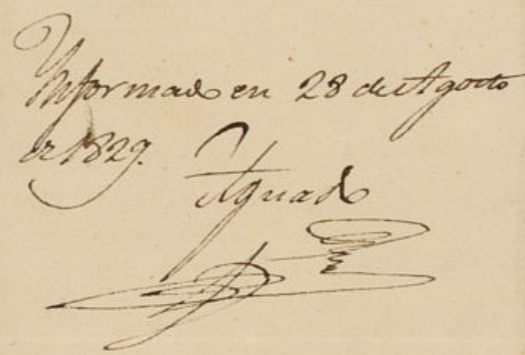 Informado en 28 de Agosto
de 1829.
Aguado